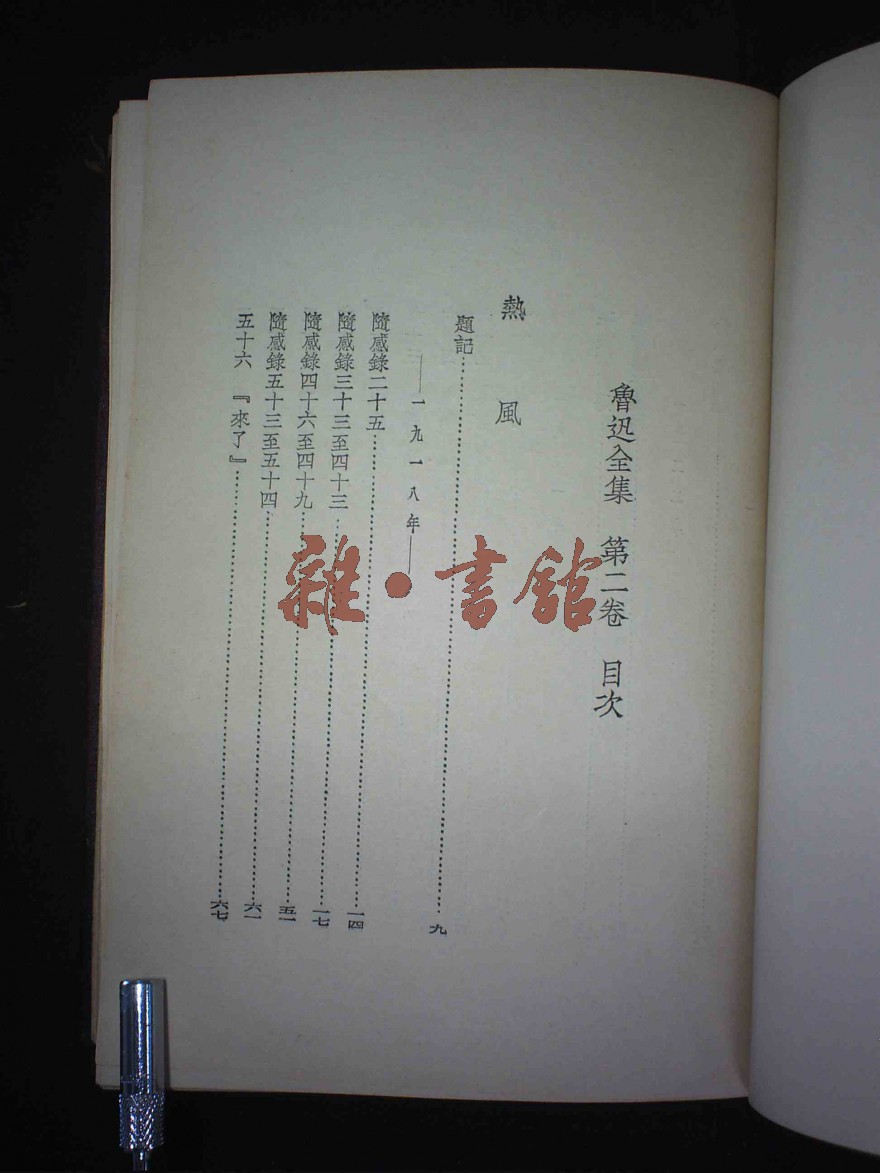 魯迅全集　第二卷　目次
熱　風
題記……九
——一九一八年——
隨感錄二十五……一四
隨感錄三十三至四十三……一七
隨感錄四十六至四十九……五一
隨感錄五十三至五十四……六一
五十六　『來了』……六七
雜・書館